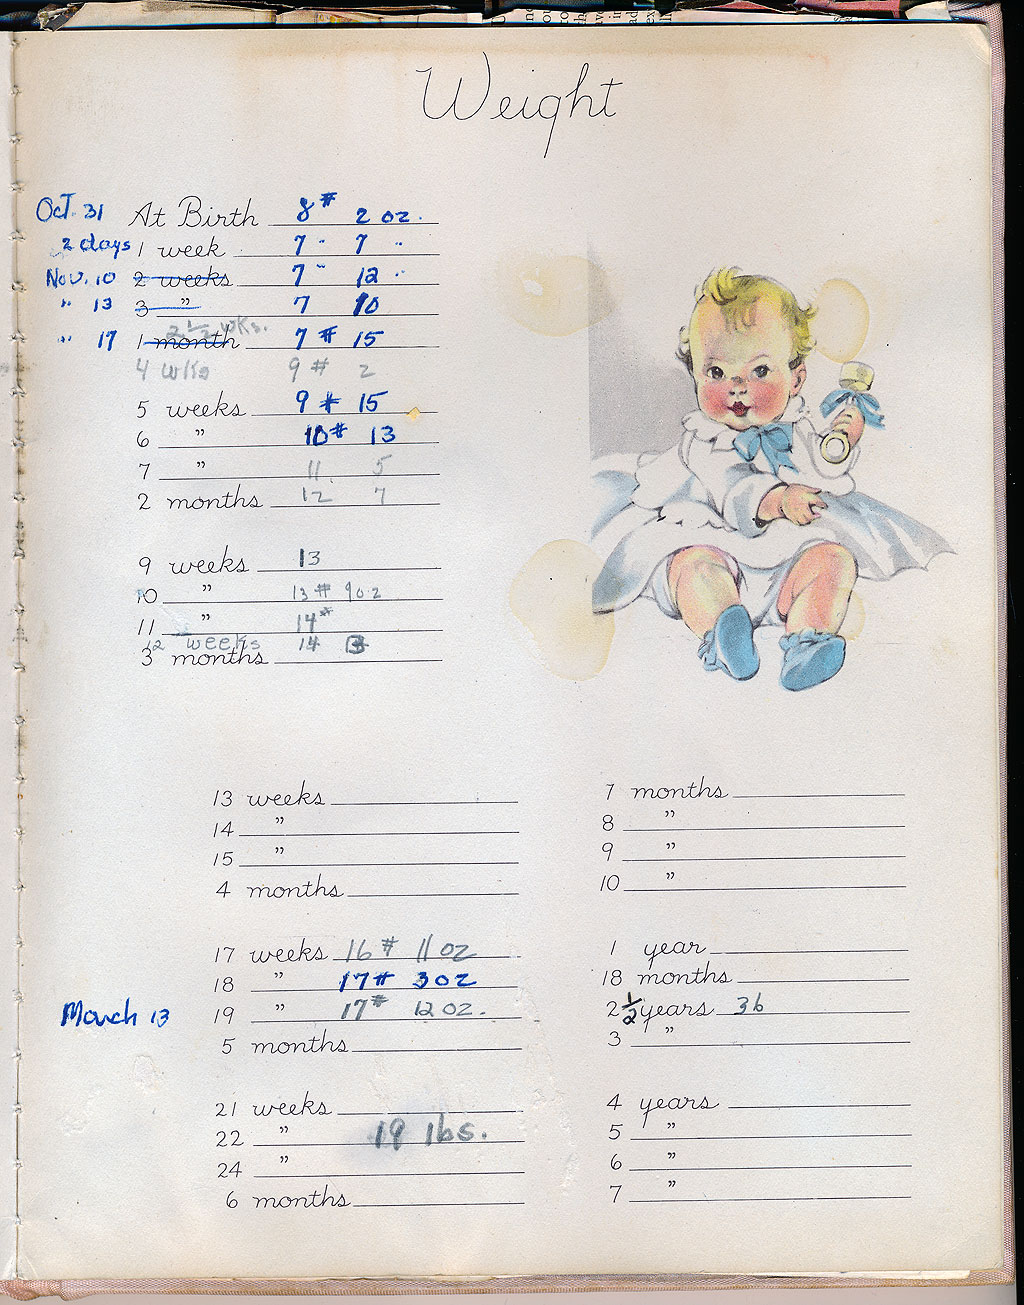 Weight
Oct. 31 At Birth 8# 2 oz.
2 days 1 week 7 " 7 "
Nov. 10 2 weeks 7 " 12 "
" 13 3 " 7 10
2 1/2 wks.
" 17 1 month 7 # 15
4 wks 9 # 2
5 weeks 9 # 15
6 " 10# 13
7 " 11 5
2 months 12 7
9 weeks 13
10 " 13 # 9 oz
11 " 14#
12 weeks 14
3 months
13 weeks
14 "
15 "
4 months
17 weeks 16 # 11 oz
18 " 17# 3 oz
March 13 19 " 17# 12 oz.
5 months
21 weeks
22 " 19 lbs.
24 "
6 months
7 months
8 "
9 "
10 "
1 year
18 months
2 1/2 years 36
3 "
4 years
5 "
6 "
7 "